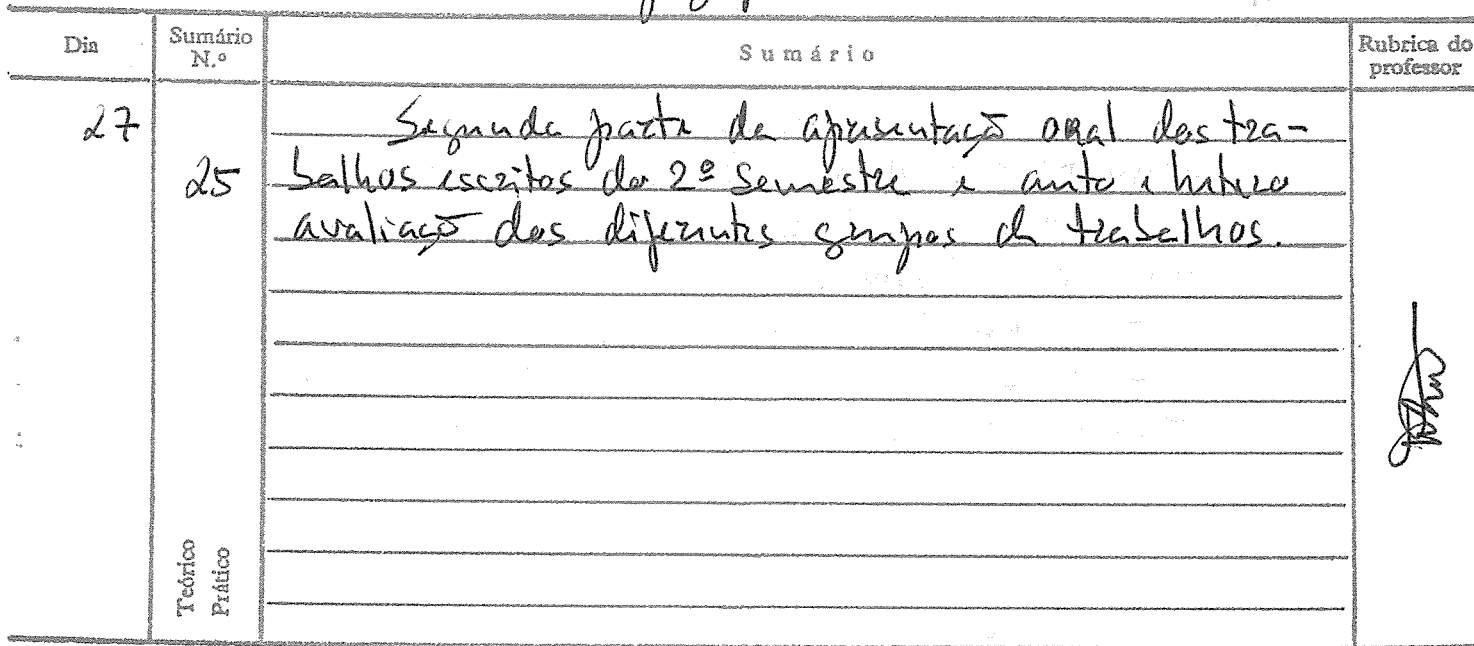 Dia
Sumário
N.º
Sumário
Rubrica do
professor
27
25
Segunda parte da apresentação oral dos tra-
balhos escritos do 2º Semestre e auto e hetero
avaliação dos diferentes grupos de trabalhos.
Teórico
Prático